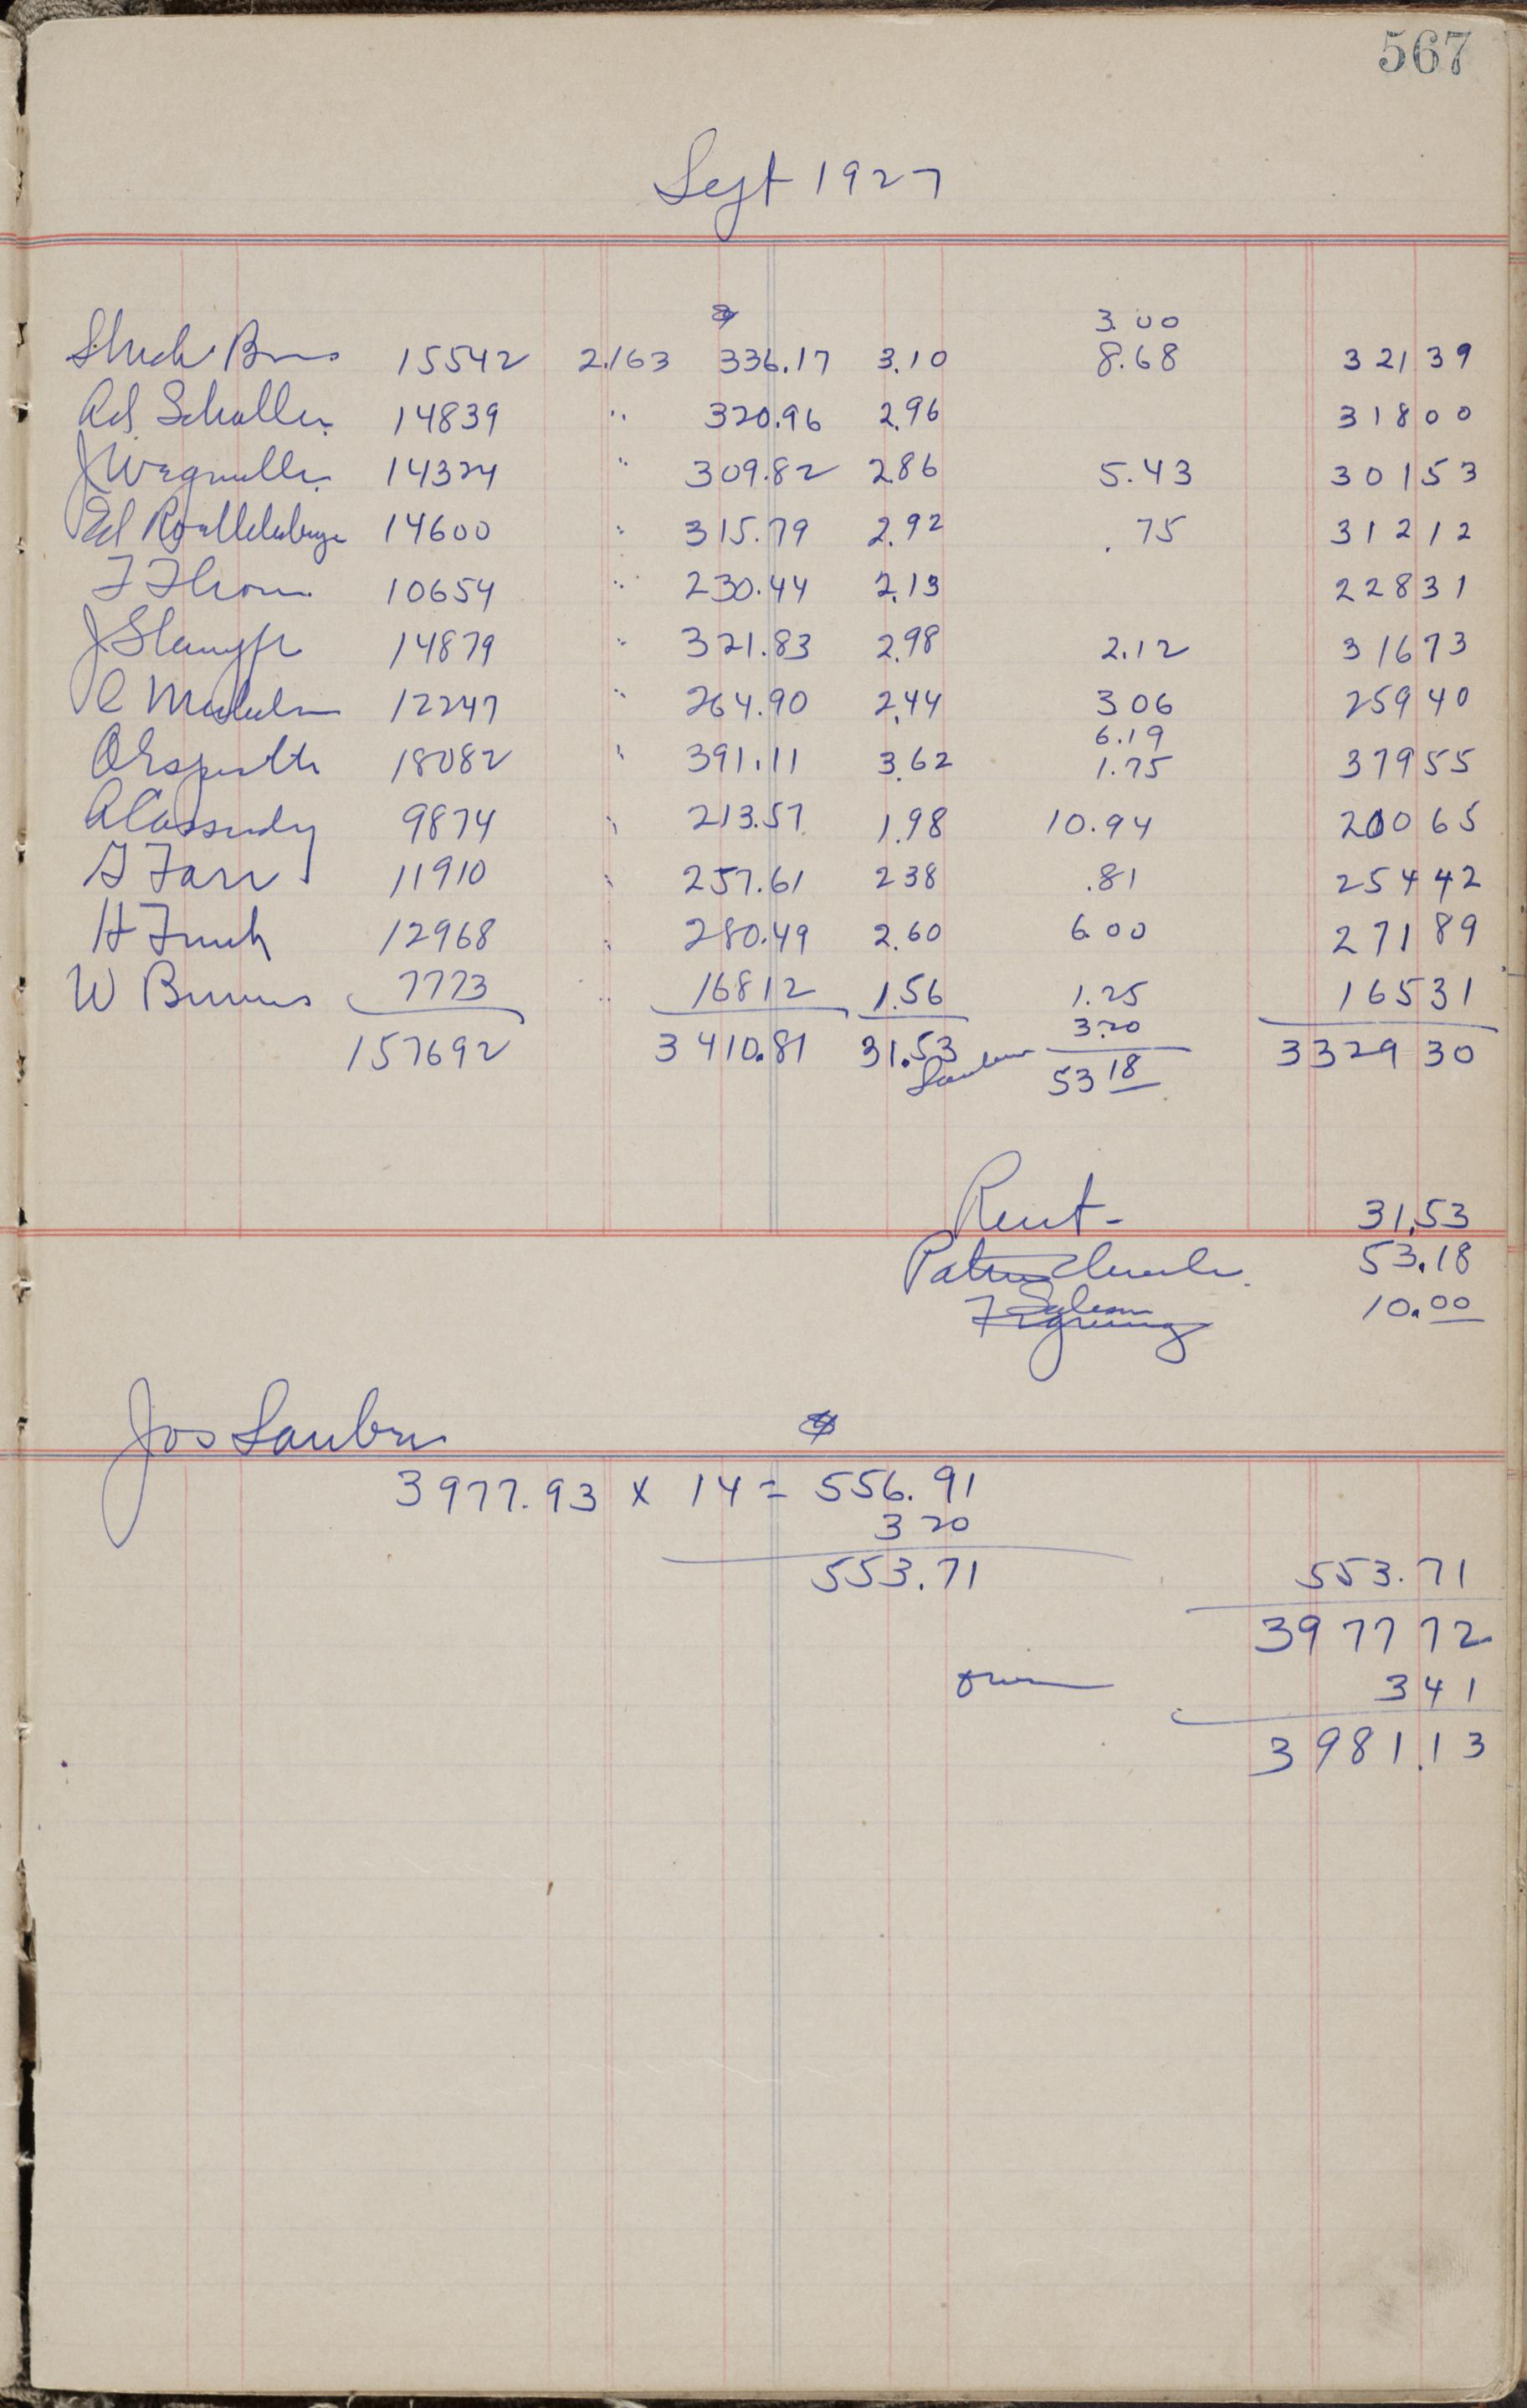 567
Sept 1927
3.00
Bros 15542 2.163 336.17 3.10 8.68 321 39
Ad Schaller 14839 " 320.96 2.96 318 00
J Wegmuller 14324 " 309.82 2.86 5.43 301 53
Ed 14600 " 315.79 2.92 .75 312 12
F Thom 10654 " 230.44 2.13 228 31
J Stampfli 14879 " 321.83 2.98 2.12 316 73
C 12247 " 264.90 2.44 3 06 259 40
6.19
O 18082 " 391.11 3.62 1.75 379 55
A Cassidy 9874 " 213.57 1.98 10.94 200 65
G Farr 11910 " 257.61 2 38 .81 254 42
H Funk 12968 " 280.49 2.60 6.00 271 89
W Burns 7773 " 168 12 1.56 1.25 165 31
3.20
157692 3410.81 31.53 3329 30
Lauber 53 18
Rent - 31.53
Patrons Checks 53.18
Salem 10.00
Jos Lauber
3977.93 x 14 = 556.91
3 20
553.71 553.71
3977 72
3 41
3981.13